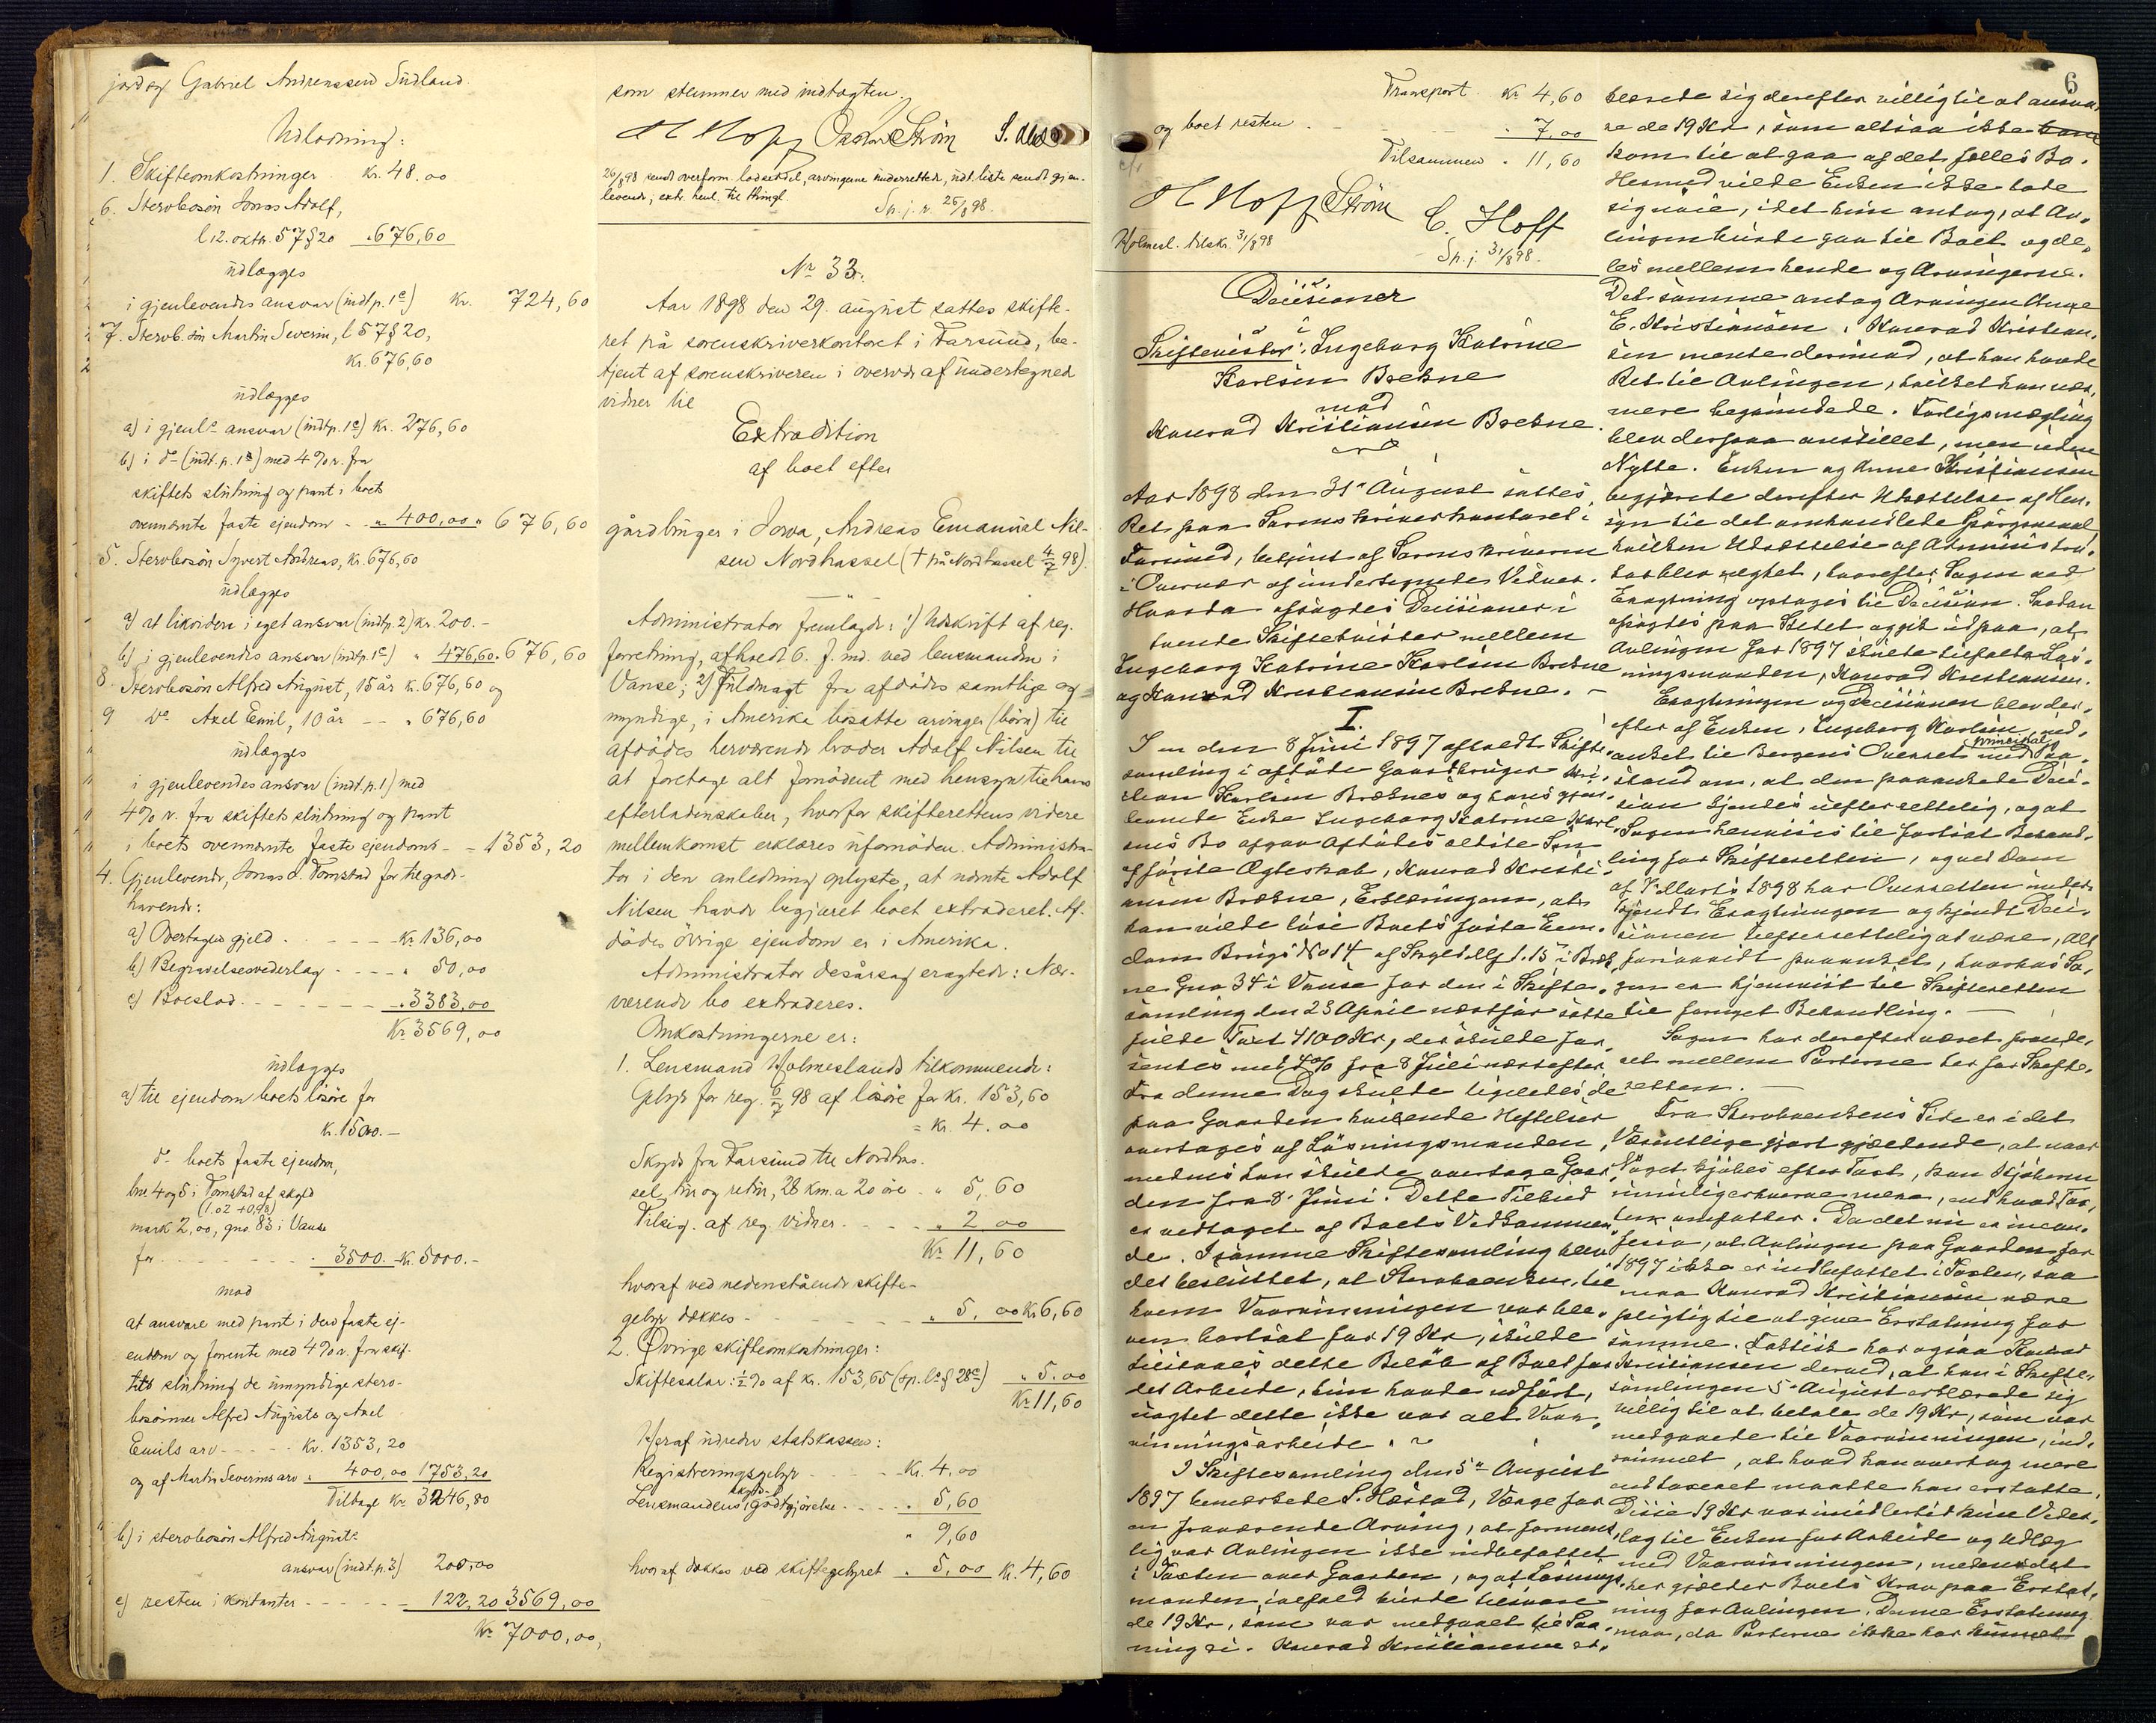 jordeg Gabriel Andreassen Sudland
Udlodning:
1. Skifteomkostninger kr. 48.00
6. Stervbosön Jonas Adolf,
l 12. oktb. 57 § 20 " 676,60
udlægges
i gjenlevendes ansvar (indt. p. 1c) kr. 724,60
7. Stervb. sön Martin Severin, l 57 § 20,
Kr. 676,60
udlægges
a) i gjenl. ansvar (indt. p. 1c) Kr. 276,60
b) i do (indt. p. 1a) med 4 % r. fra
skiftets slutning og pant i boets
ovennævnte faste ejendom - " 400,00 " 676,60
5. Stervbosön Syvert Andreas, kr. 676,60
udlægges
a) at likvidere i eget ansvar (indt. p. 2) kr. 200.-
b) i gjenlevendes ansvar (indt. p. 1c) " 476,60 " 676,60
8 Stervbosön Alfred August, 15 år k. 676,60 og
9 do Axel Emil, 10 år - - " 676,60
udlægges
i gjenlevendes ansvar (indt. p. 1) med
4 % r. fra skiftets slutning og pant
i boets ovennævnte faste ejendom - - 1353,20
4. Gjenlevende, Jonas S. Tomstad for tilgode-
havende:
a) Overtagen gjeld . - - - - Kr. 136,00
b) Begravelsesvederlag - - - - " 50,00
c) Boeslod - - - - - " 3383,00
Kr. 3569,00
udlægges
a) til ejendom boets lösöre for
kr. 1500.-
do boets faste ejendom,
bno 4 og 5 i Tomstad af skyld
(1.02 + 0,98)
mark 2,00, gno 83 i Vanse
for - - - - - - " 3500.- K. 5000.-
mod
at ansvare med pant i den faste ej-
endom og forrente med 4 % r. fra skif-
tets slutning de umyndige stervbo-
bosönner Alfred Augusts og Axel
Emils arv - - - - kr. 1353,20
og af Martin Severins arv " 400,00 1753,20
Tilbage kr. 3246,80
b) i stervbosön Alfred Augusts
ansvar (indt. p. 3) 200,00
c) resten i kontanter - - - - - 122,20 3569,00
Kr. 7000,00,
som stemmer med indtægten.
H Hoff Oskar Ström S.
26/8 98 sendt overform. lodseddel, arvingerne underrettede, udt. liste sendt gjen-
levende; extr. henl. til thingl.
Sp. j. r. 26/8 98.
No 33.
Aar 1898 den 29. august sattes skifte-
ret på sorenskriverkontoret i Farsund, be-
tjent af sorenskriveren i overvær af undertegnede
vidner til
Extradition
af boet efter
gårdbruger i Iowa, Andreas Emanuel Nil-
sen Nordhassel († på Nordhassel 4/7 98).
Administrator fremlagde: 1) Udskrift af reg.
forretning, afholdt 6. f. md. ved lensmanden i
Vanse; 2) Fuldmagt fra afdödes samtlige og
myndige, i Amerika bosatte arvinger (börn) til
afdödes herværende broder Adolf Nilsen til
at foretage alt fornödent med hensyn til hans
efterladenskaber, hvorfor skifterettens videre
mellemkomst erklæres ufornöden. Administra-
tor i den anledning oplyste, at nævnte Adolf
Nilsen havde begjæret boet extraderet. Af-
dödes övrige ejendom er i Amerika.
Administrator desårsag eragtede: Nær-
værende bo extraderes.
Omkostningerne er:
1. Lensmand Holmeslands tilkommende:
Gebyr for reg. 6/7 98 af lösöre for kr. 153,60
= kr. 4.00
Skyds fra Farsund til Nordhas-
sel, tur og retur, 28 km. a 20 öre - " 5,60
Tilsig. af reg. vidner - - - - " 2.00
Kr. 11,60
hvoraf ved nedenstående skifte-
gebyr dækkes - - - - - " 5,00 Kr. 6,60
2. Øvrige skifteomkostninger:
Skiftesalær: ½ % af kr. 153,65 (sp. l. § 28c) " 5.00
Kr. 11,60
Heraf udredes statskassen:
Registreringsgebyr - - - - Kr. 4,00
skyds-
Lensmandens godtgjörelse - - - . " 5,60
" 9,60
hvoraf dækkes ved skiftegebyret " 5,00 K. 4,60
Transport. Kr. 4,60
og boet resten . - - - - - " 7,00
Tilsammen " 11,60
H Hoff Ström C. Hoff
Holmesl. tilskr. 31/8 98
Sp. j. 31/8 98.
Decisioner
i
Skiftetvister: Ingeborg Katrine
Karlsen Brekne
mod
Konrad Kristiansen Brekne.
Aar 1898 den 31te August sattes
Ret paa Sorenskriverkontoret i
Farsund, betjent af Sorenskriveren
i Overvær af undertegnede Vidner.
Hvorda afsagdes Decisioner i
tvende Skiftetvister mellem
Ingeborg Katrine Karlsen Brekne
og Konrad Kristiansen Brekne. -
I.
I en den 8 Juni 1897 afholdt Skifte-
samling i afdøde Gaardbruger Kri-
stian Karlsen Bræknes og hans gjen-
levende Enke Ingeborg Katrine Karl-
sens Bo afgav Afdødes ældste Søn
af første Ægteskab, Konrad Kristi-
ansen Brækne, Erklæringen, at
han vilde løse Boets faste Eien-
dom Brugs No 14 af Skyld Mk 1.15 i Bræk-
ne Gno 34 i Vanse for den i Skifte-
samling den 23 April næstfør satte
fulde Taxt 4100 Kr, der skulde for-
rentes med 4 % fra 8 Juli næstefter.
Fra denne Dag skulde ligeledes de
paa Gaarden hvilende Heftelser
overtages af Løsningsmanden,
medens han skulde overtage Gaar-
den fra 8. Juni. Dette Tilbud
er vedtaget af Boets Vedkommen-
de. I samme Skiftesamling blev
det besluttet, at Stervboenken, til
hvem Vaaronningen var ble-
ven bortsat for 19 Kr, skulde
tilstaaes dette Beløb af Boet for
det Arbeide, hun havde udført,
uagtet dette ikke var alt Vaar-
onningsarbeide. -
I Skiftesamling den 5te August
1897 bemærkede S. Hæstad, Værge for
en fraværende Arving, at forment-
lig var Avlingen ikke indbefattet
i Taxten over Gaarden, og at Løsnings-
manden ialfald burde tilsvare
de 19 Kr, som var medgaaet til Saa-
ning ei. Konrad Kristiansen er-
6
klærede sig derefter villig til at ansva-
re de 19 Kr, som altsaa ikke
kom til at gaa af det fælles Bo.
Hermed vilde Enken ikke lade
sig nøie, idet hun antog, at Av-
lingen burde gaa til Boet og de-
les mellem hende og Arvingerne.
Det samme antog Arvingen Anne
E. Kristiansen. Konrad Kristian-
sen mente derimod, at han havde
Ret til Avlingen, hvilket han nær-
mere begrundede. Forligsmægling
blev derpaa anstillet, men uden
Nytte. Enken og Anne Kristiansen
begjærede derefter Udsættelse af Hen-
syn til det omhandlede Spørgsmaal
hvilken Udsættelse af Administra-
tor blev nægtet, hvorefter Sagen ved
Eragtning optoges til Decision. Saadan
afsagdes paa Stedet og gik ud paa, at
Avlingen for 1897 skulde tilfalde Løs-
ningsmanden, Konrad Kristiansen.
Eragtningen og Decisionen blev der-
efter af Enken, Ingeborg Karlsen, paa-
anket til Bergens Overret med principal Paa-
stand om, at den paaankede Deci-
sion kjendes uefterrettelig, og at
Sagen henvises til fortsat Behand-
ling for Skifteretten, og ved Dom
af 7. Marts 1898 har Overretten under-
kjendt Eragtningen og kjendt Deci-
sionen uefterrettelig at være, alt
forsaavidt paaanket, hvorhos Sa-
gen er hjemvist til Skifteretten
til fornyet Behandling. -
Sagen har derefter været procede-
ret mellem Parterne her for Skifte-
retten. -
Fra Stervboenkens Side er i det
Væsentlige gjort gjældende, at naar
Noget kjøbes efter Taxt, kan Kjøberen
umulig erhverve mere, end hvad Tax-
ten omfatter. Da det nu er incon-
fesso, at Avlingen paa Gaarden for
1897 ikke er indbefattet i Taxten, saa
maa Konrad Kristiansen være
pligtig til at give Erstatning for
samme. Faktisk har ogsaa Konrad
Kristiansen derved, at han i Skifte-
samlingen 5te August erklærede sig
villig til at betale de 19 Kr, som var
medgaaede til Vaaronningen, ind-
rømmet, at hvad han overtog mere
end taxeret maatte han erstatte.
Disse 19 Kr var imidlertid kun Veder-
lag til Enken for Arbeide og Udlæg
ved Vaaronningen, medens det
her gjælder Boets Krav paa Erstat-
ning for Avlingen. Denne Erstatning
maa, da Parterne ikke har kunnet